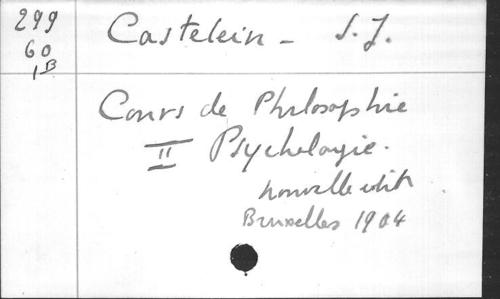 299
60
1B
Castelein - S.J.
Cours de Philosophie
II Psychologie.
nouvelle edit
Bruxelles 1904